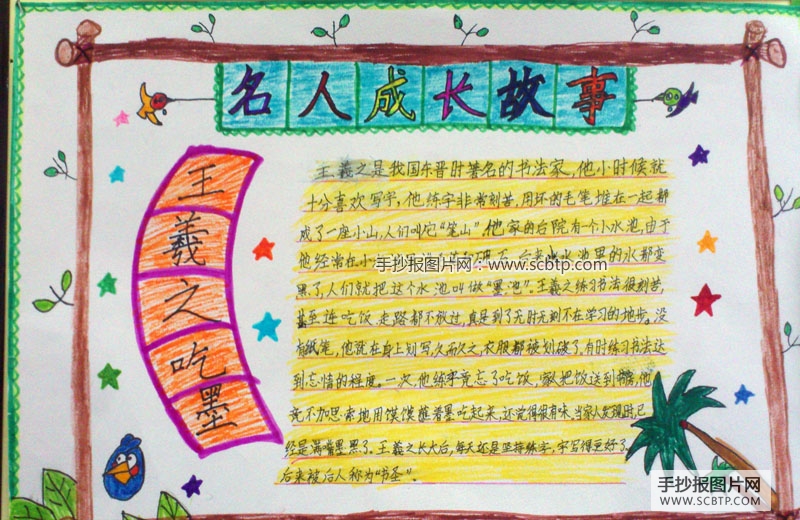 手抄报图片网
WWW.SCBTP.COM
名人成长故事
王羲之吃墨
王羲之是我国东晋时著名的书法家。他小时候就
十分喜欢写字,他练字非常刻苦,用坏的毛笔堆在一起都
成了一座小山,人们叫它“笔山”。他家的后院有个小水池,由于
他经常在小水池里
手抄报图片网:www.scbtp.com
后来小水池里的水都变
黑了,人们就把这个水池叫做“墨池”。王羲之练习书法很刻苦,
甚至连吃饭、走路都不放过,真是到了无时无刻不在学习的地步。没
有纸笔,他就在身上划写,久而久之,衣服都被划破了。有时练习书法达
到忘情的程度。一次,他练字竟忘了吃饭,家人把饭送到书房,他
竟不加思索地用馍馍蘸着墨吃起来,还觉得很有味。当家人发现时,已
经是满嘴墨黑了。王羲之长大后,每天还是坚持练字,字写得更好了。
后来被后人称为“书圣”。
手抄报图片网
WWW.SCBTP.COM